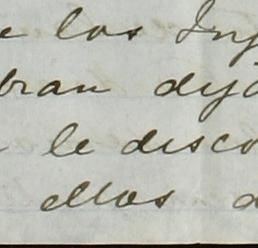 e los Ing
bran dijo
le disco
ellos d